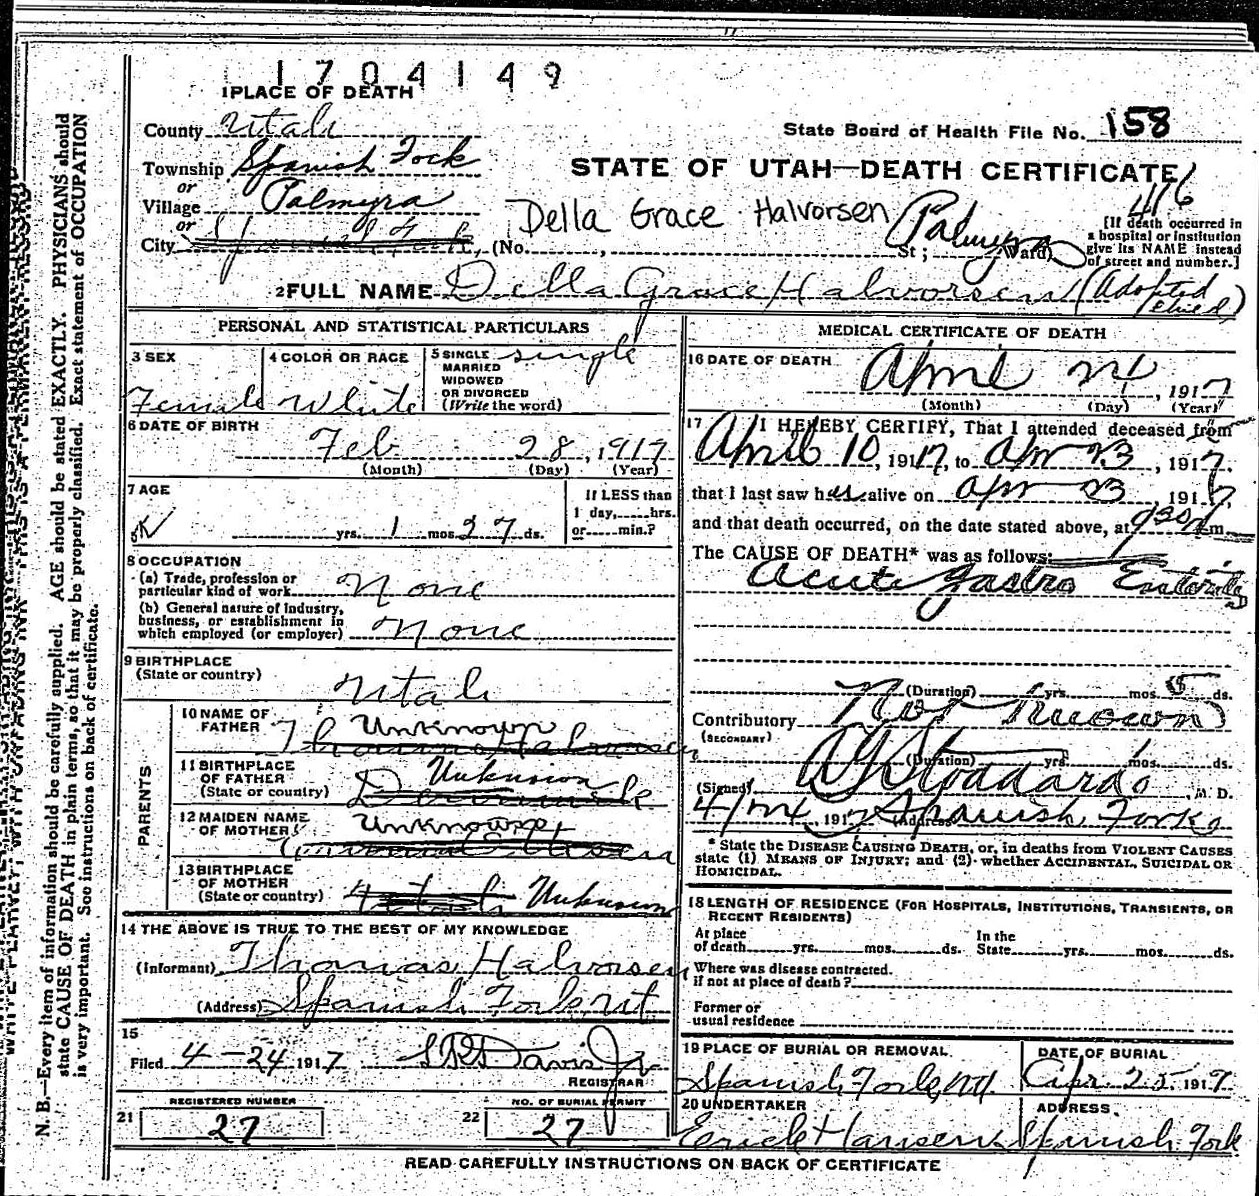 1704149
1 PLACE OF DEATH
County Utah
State Board of Health File No. 158
Township Spanish Fork
STATE OF UTAH—DEATH CERTIFICATE
or
Village Palmyra
416
Della Grace Halvorsen
Palmyra
or
City Spanish Fork, (No. , St; Ward)
[If death occurred in
a hospital or institution
give its NAME instead
of street and number.]
2 FULL NAME Della Grace Halvorsen (Adopted
PERSONAL AND STATISTICAL PARTICULARS
3 SEX
Female
4 COLOR OR RACE
White
5 SINGLE
MARRIED
WIDOWED
OR DIVORCED
(Write the word)
single
6 DATE OF BIRTH
Feb 28, 1917
(Month) (Day) (Year)
7 AGE
yrs. 1 mos. 27 ds.
If LESS than
1 day, hrs.
or min.?
8 OCCUPATION
(a) Trade, profession or
particular kind of work None
(b) General nature of industry,
business, or establishment in
which employed (or employer) None
9 BIRTHPLACE
(State or country)
Utah
PARENTS
10 NAME OF
FATHER
Unknown
Thomas Halvorsen
11 BIRTHPLACE
OF FATHER
(State or country)
Unknown
Denmark
12 MAIDEN NAME
OF MOTHER
Unknown
13 BIRTHPLACE
OF MOTHER
(State or country)
Utah Unknown
14 THE ABOVE IS TRUE TO THE BEST OF MY KNOWLEDGE
(Informant) Thomas Halvorsen
(Address) Spanish Fork Ut
15
Filed 4-24 1917 Davis Jr
REGISTRAR
REGISTERED NUMBER
21 27
NO. OF BURIAL PERMIT
22 27
MEDICAL CERTIFICATE OF DEATH
16 DATE OF DEATH
April 24, 1917
(Month) (Day) (Year)
17 I HEREBY CERTIFY, That I attended deceased from
April 10, 1917, to Apr 23, 1917,
that I last saw her alive on Apr 23, 1917,
and that death occurred, on the date stated above, at 930 m.
The CAUSE OF DEATH* was as follows:
Acute Gastro Enteritis
(Duration) yrs. mos. 15 ds.
Contributory Not Known
(SECONDARY)
(Duration) yrs. mos. ds.
(Signed) Stoddard, M. D.
4/24, 1917 (Address) Spanish Fork
* State the DISEASE CAUSING DEATH, or, in deaths from VIOLENT CAUSES
state (1) MEANS OF INJURY; and (2) whether ACCIDENTAL, SUICIDAL OR
HOMICIDAL.
18 LENGTH OF RESIDENCE (FOR HOSPITALS, INSTITUTIONS, TRANSIENTS, OR
RECENT RESIDENTS)
At place
of death yrs. mos. ds.
In the
State yrs. mos. ds.
Where was disease contracted,
if not at place of death?
Former or
usual residence
19 PLACE OF BURIAL OR REMOVAL
Spanish Fork, Ut
DATE OF BURIAL
Apr 25 1917
20 UNDERTAKER
Erick Hansen
ADDRESS
Spanish Fork
READ CAREFULLY INSTRUCTIONS ON BACK OF CERTIFICATE
N. B.—Every item of information should be carefully supplied. AGE should be stated EXACTLY. PHYSICIANS should
state CAUSE OF DEATH in plain terms, so that it may be properly classified. Exact statement of OCCUPATION
is very important. See instructions on back of certificate.